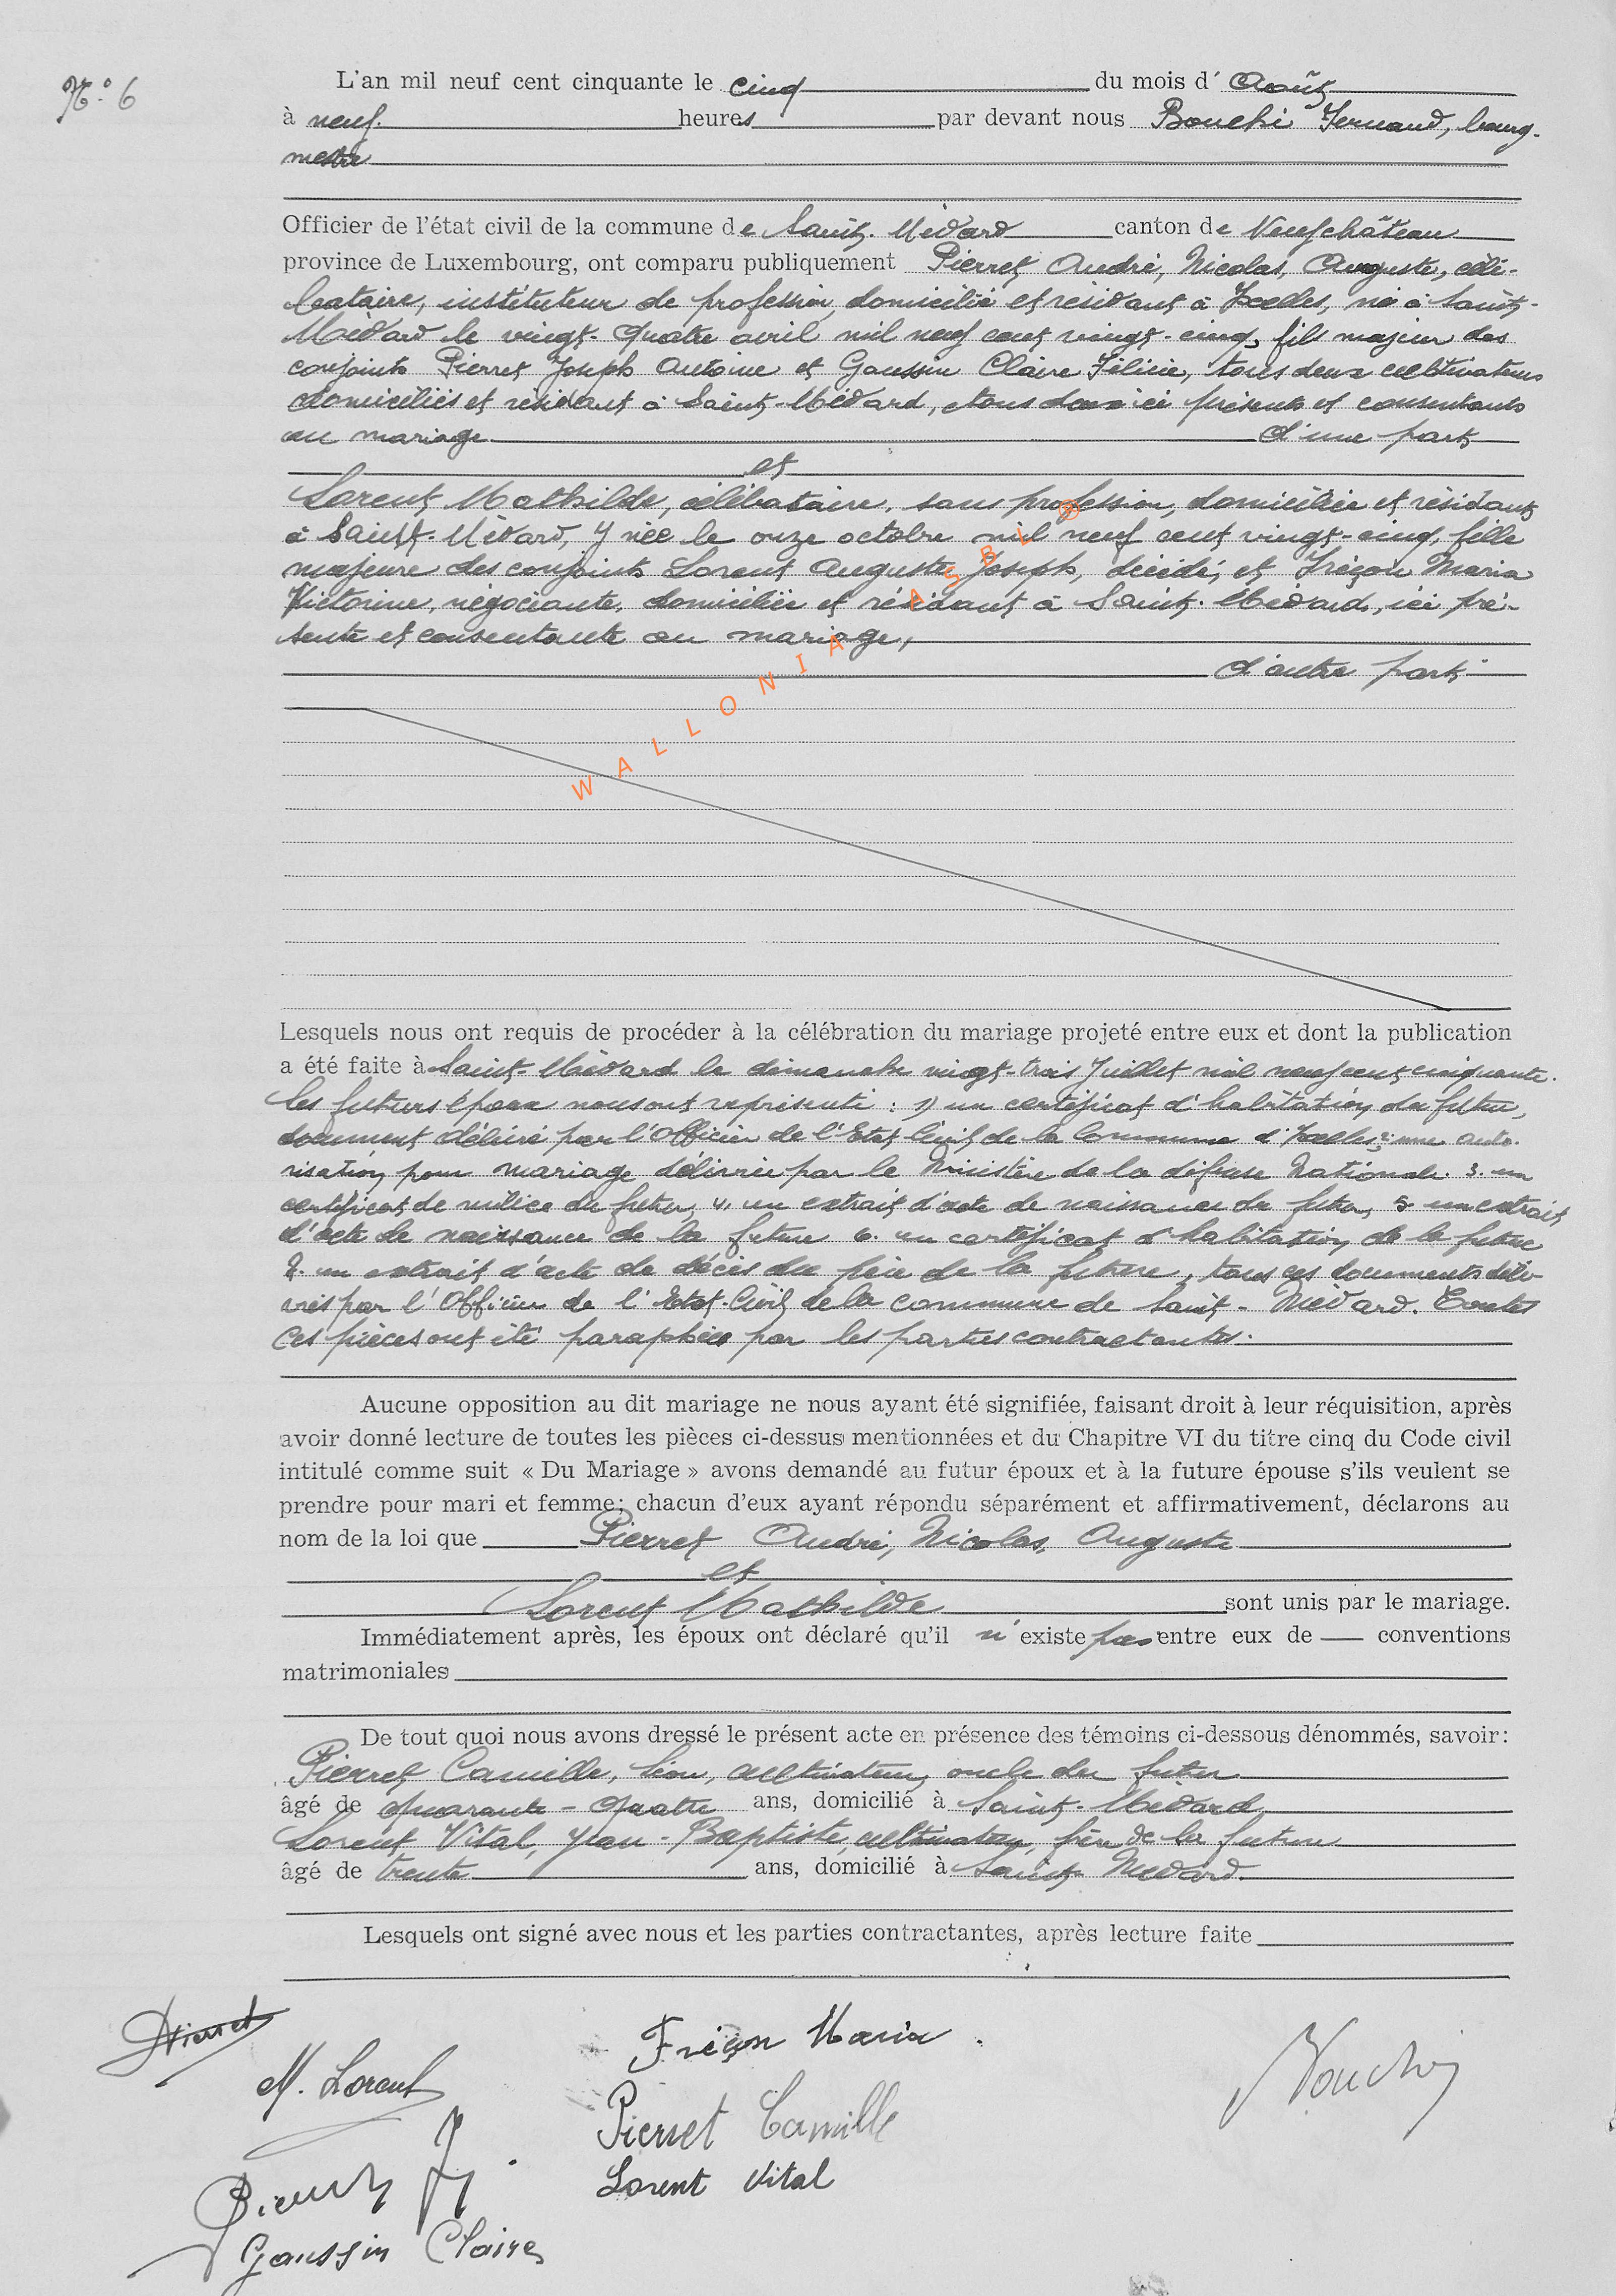 N° 6
L'an mil neuf cent cinquante le cinq du mois d' Août
à neuf heures par devant nous Bouchi Fernand, bourg-
mestre
Officier de l'état civil de la commune de Saint-Médard canton de Neufchâteau
province de Luxembourg, ont comparu publiquement Pierret André, Nicolas, Auguste, céli-
bataire, instituteur de profession, domicilié et résidant à Ixelles, né à Saint-
Médard le vingt-quatre avril mil neuf cent vingt-cinq, fils majeur des
conjoints Pierret Joseph Antoine et Gaussin Claire Félicie, tous deux cultivateurs
domiciliés et résidant à Saint-Médard, tous deux ici présents et consentants
au mariage d'une part
et
Lorent Mathilde, célibataire, sans profession, domiciliée et résidant
à Saint-Médard, y née le onze octobre mil neuf cent vingt-cinq, fille
majeure des conjoints Lorent Auguste Joseph, décédé, et Fréçon Maria
Victorine, négociante, domiciliée et résidant à Saint-Médard, ici pré-
sente et consentante au mariage,
d'autre part
WALLONIA ASBL ®
Lesquels nous ont requis de procéder à la célébration du mariage projeté entre eux et dont la publication
a été faite à Saint-Médard le dimanche vingt-trois Juillet mil neuf cent cinquante.
Les futurs époux nous ont représenté : 1) un certificat d'habitation du futur,
document délivré par l'Officier de l'Etat Civil de la Commune d'Ixelles 2. une auto-
risation pour mariage délivrée par le Ministère de la défense Nationale. 3. un
certificat de milice du futur, 4. un extrait d'acte de naissance du futur, 5. un extrait
d'acte de naissance de la future 6. un certificat d'habitation de la future
7. un extrait d'acte de décès du père de la future, tous ces documents déli-
vrés par l'Officier de l'Etat-Civil de la commune de Saint-Médard. Toutes
ces pièces ont été paraphées par les parties contractantes.
Aucune opposition au dit mariage ne nous ayant été signifiée, faisant droit à leur réquisition, après
avoir donné lecture de toutes les pièces ci-dessus mentionnées et du Chapitre VI du titre cinq du Code civil
intitulé comme suit « Du Mariage » avons demandé au futur époux et à la future épouse s'ils veulent se
prendre pour mari et femme; chacun d'eux ayant répondu séparément et affirmativement, déclarons au
nom de la loi que Pierret André, Nicolas, Auguste
et
Lorent Mathilde sont unis par le mariage.
Immédiatement après, les époux ont déclaré qu'il n'existe pas entre eux de — conventions
matrimoniales
De tout quoi nous avons dressé le présent acte en présence des témoins ci-dessous dénommés, savoir:
Pierret Camille, Léon, cultivateur, oncle du futur
âgé de quarante-quatre ans, domicilié à Saint-Médard,
Lorent, Vital, Jean-Baptiste, cultivateur, frère de la future
âgé de trente ans, domicilié à Saint Médard.
Lesquels ont signé avec nous et les parties contractantes, après lecture faite
Pierret
M. Lorent
Pierret J.
Gaussin Claire
Freçon Maria.
Pierret Camille
Lorent Vital